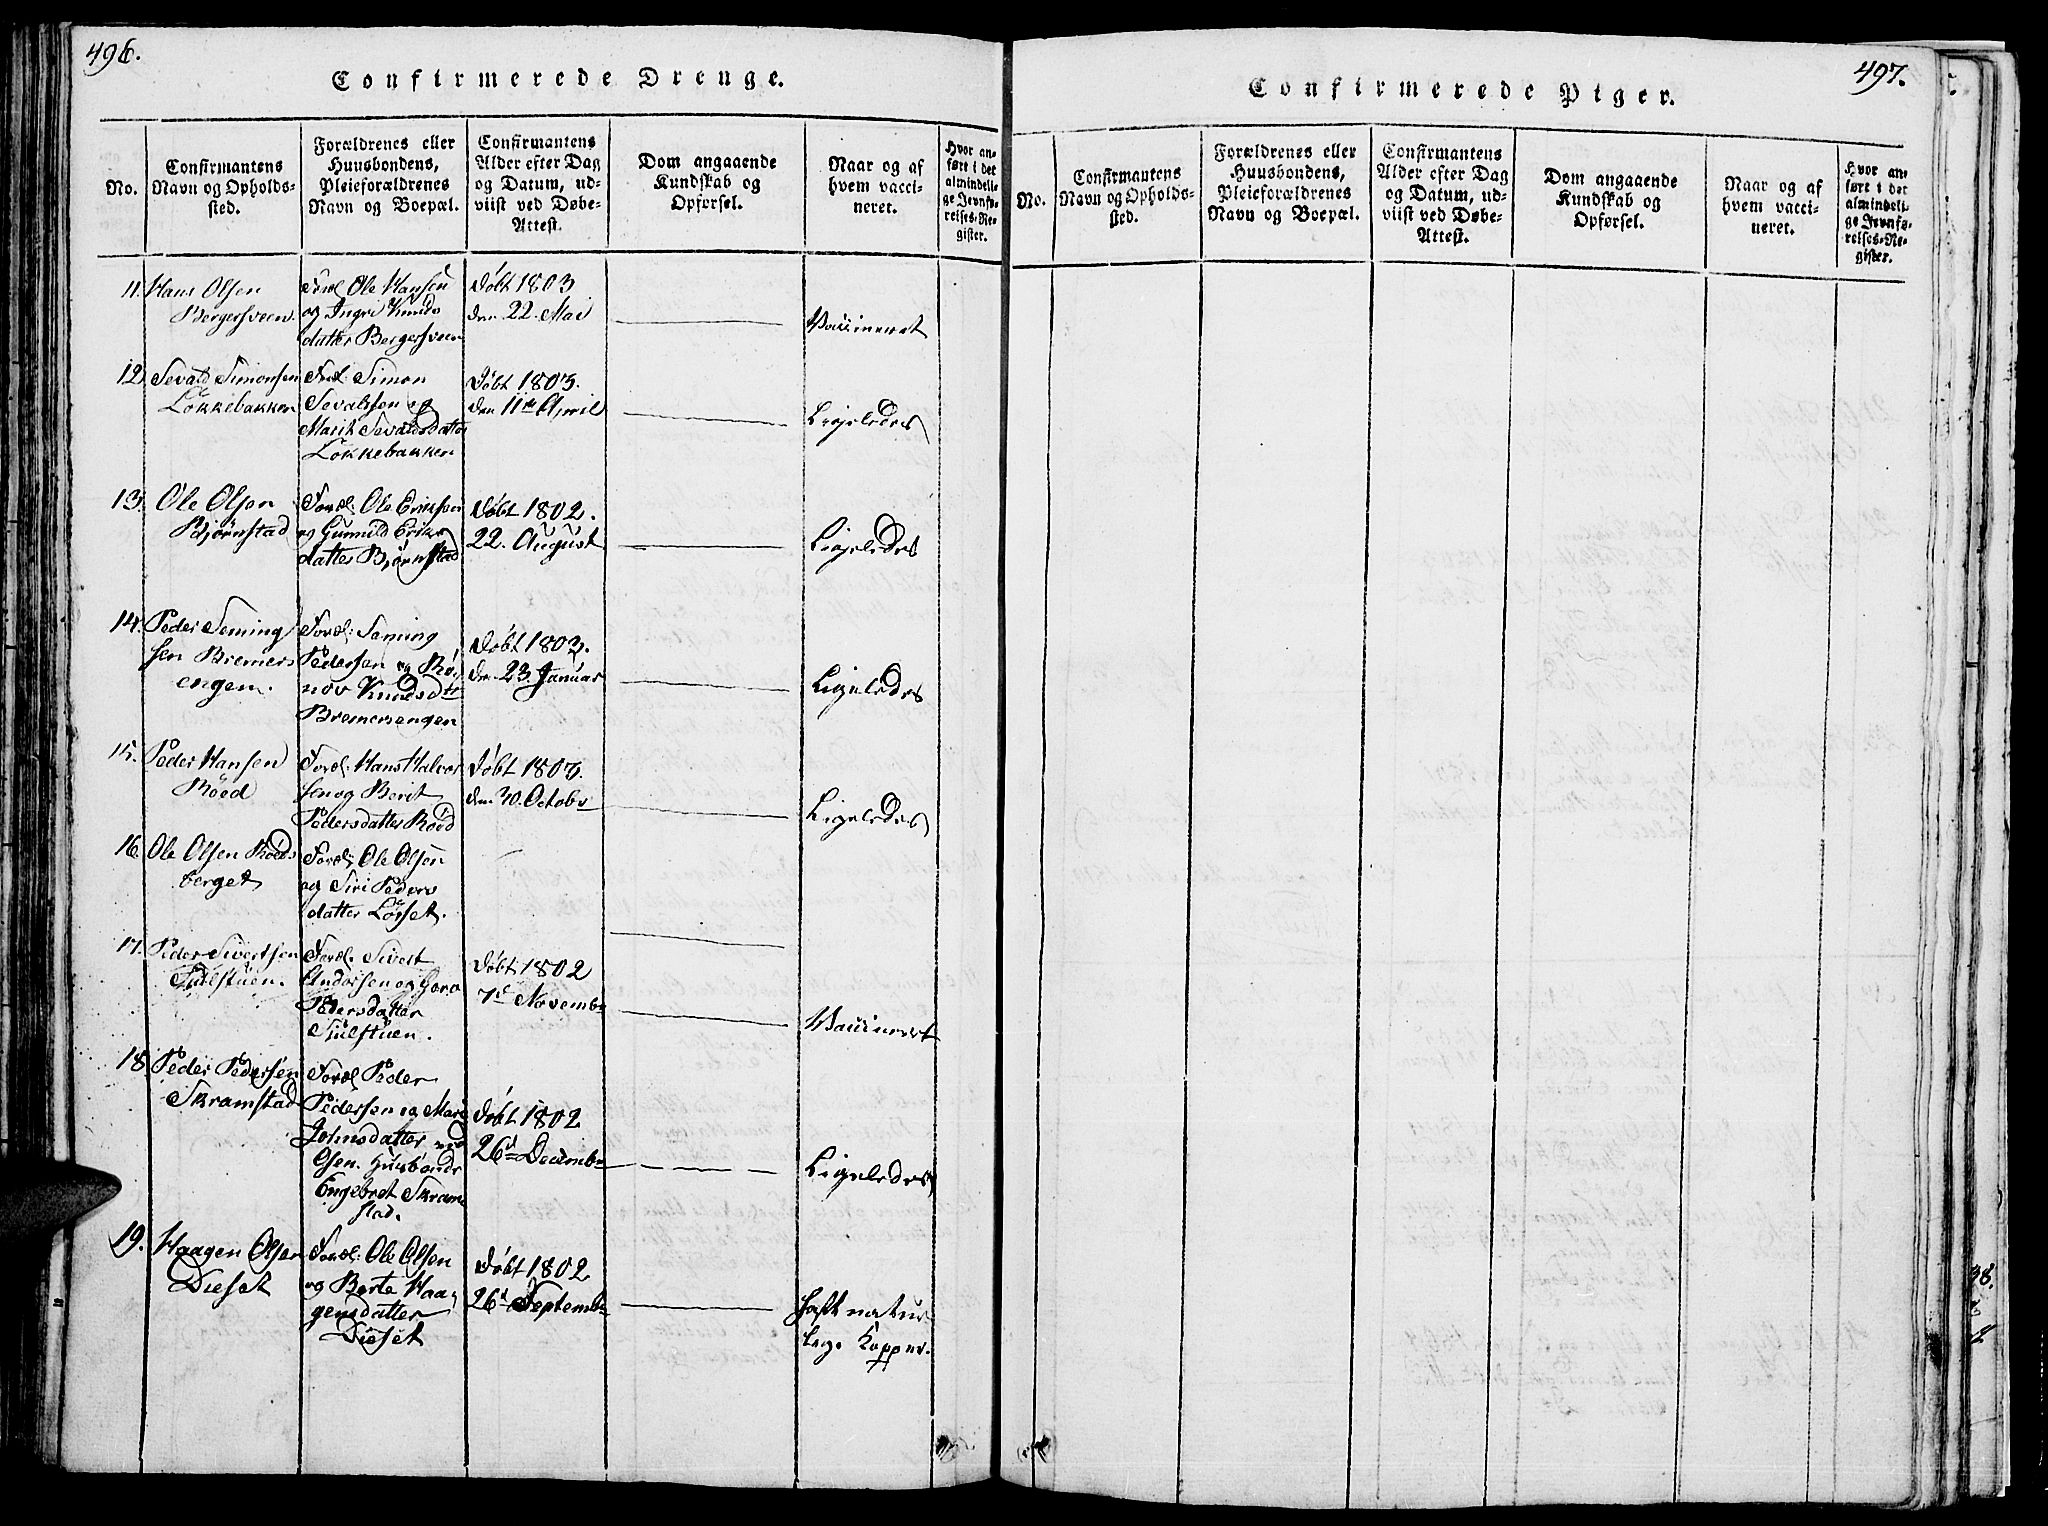 496.
Confirmerede Drenge.
No.
Confirmantens
Navn og Opholds-
sted.
Forældrenes eller
Huusbondens,
Pleieforældrenes
Navn og Boepæl.
Confirmantens
Alder efter Dag
og Datum, ud-
viist ved Døbe-
Attest.
Dom angaaende
Kundskab og
Opførsel.
Naar og af
hvem vacci-
neret.
Hvor an-
ført i det
almindeli-
ge Jevnfø-
relses-Re-
gister.
11. Hans Olsen
Bergersveen.
Foræl Ole Hansen
og Ingri Knuds
datter Bergersveen
Døbt 1803
den 22. Mai
Vaccineret
12. Sevald Simonsen
Løkkebakken
Foræl: Simon
Sevaldsen og
Marit Sevaldsdatter
Løkkebakken
Døbt 1803.
den 11te April
Ligeledes
13. Ole Olsen
Bjørnstad
Foræl: Ole Ericksen
og Gunnild Eriks
datter Bjørnstad
Døbt 1802.
22. August
Ligeledes
14. Peder Seming
sen Bremers
engen.
Foræl: Seming
Pedersen og Røn
nov Knudsdtr
Bremersengen
Døbt 1803.
den 23. Januar
Ligeledes
15. Peder Hansen
Røed
Foræl: Hans Halvor
sen og Berit
Pedersdatter Røed
Døbt 1803.
den 30. Octobr
Ligeledes
16. Ole Olsen Røeds
berget
Foræl: Ole Olsen
og Siri Peders
datter Løsset.
17. Peder Sivertsen
Sulstuen.
Foræl: Sivert
Andersen og Goro
Pedersdatter
Sulstuen.
Døbt 1802
7d Novembr
Vaccineret
18. Peder Pedersen
Skramstad
Foræl Peder
Pedersen og Mari
Johnsdatter
Osen. Huusbonde
Engebret Skram
stad.
Døbt 1802
26d Decembr
Ligeledes
19. Haagen Olsen
Dieset
Foræl: Ole Olsen
og Berte Haa
gensdatter
Dieset
Døbt 1802
26d Septembr
haft natur
lige Kopper.
497.
Confirmerede Piger.
No.
Confirmantens
Navn og Opholds-
sted.
Forældrenes eller
Huusbondens,
Pleieforældrenes
Navn og Boepæl.
Confirmantens
Alder efter Dag
og Datum, ud-
viist ved Døbe-
Attest.
Dom angaaende
Kundskab og
Opførsel.
Naar og af
hvem vacci-
neret.
Hvor an-
ført i det
almindeli-
ge Jevnfø-
relses-Re-
gister.